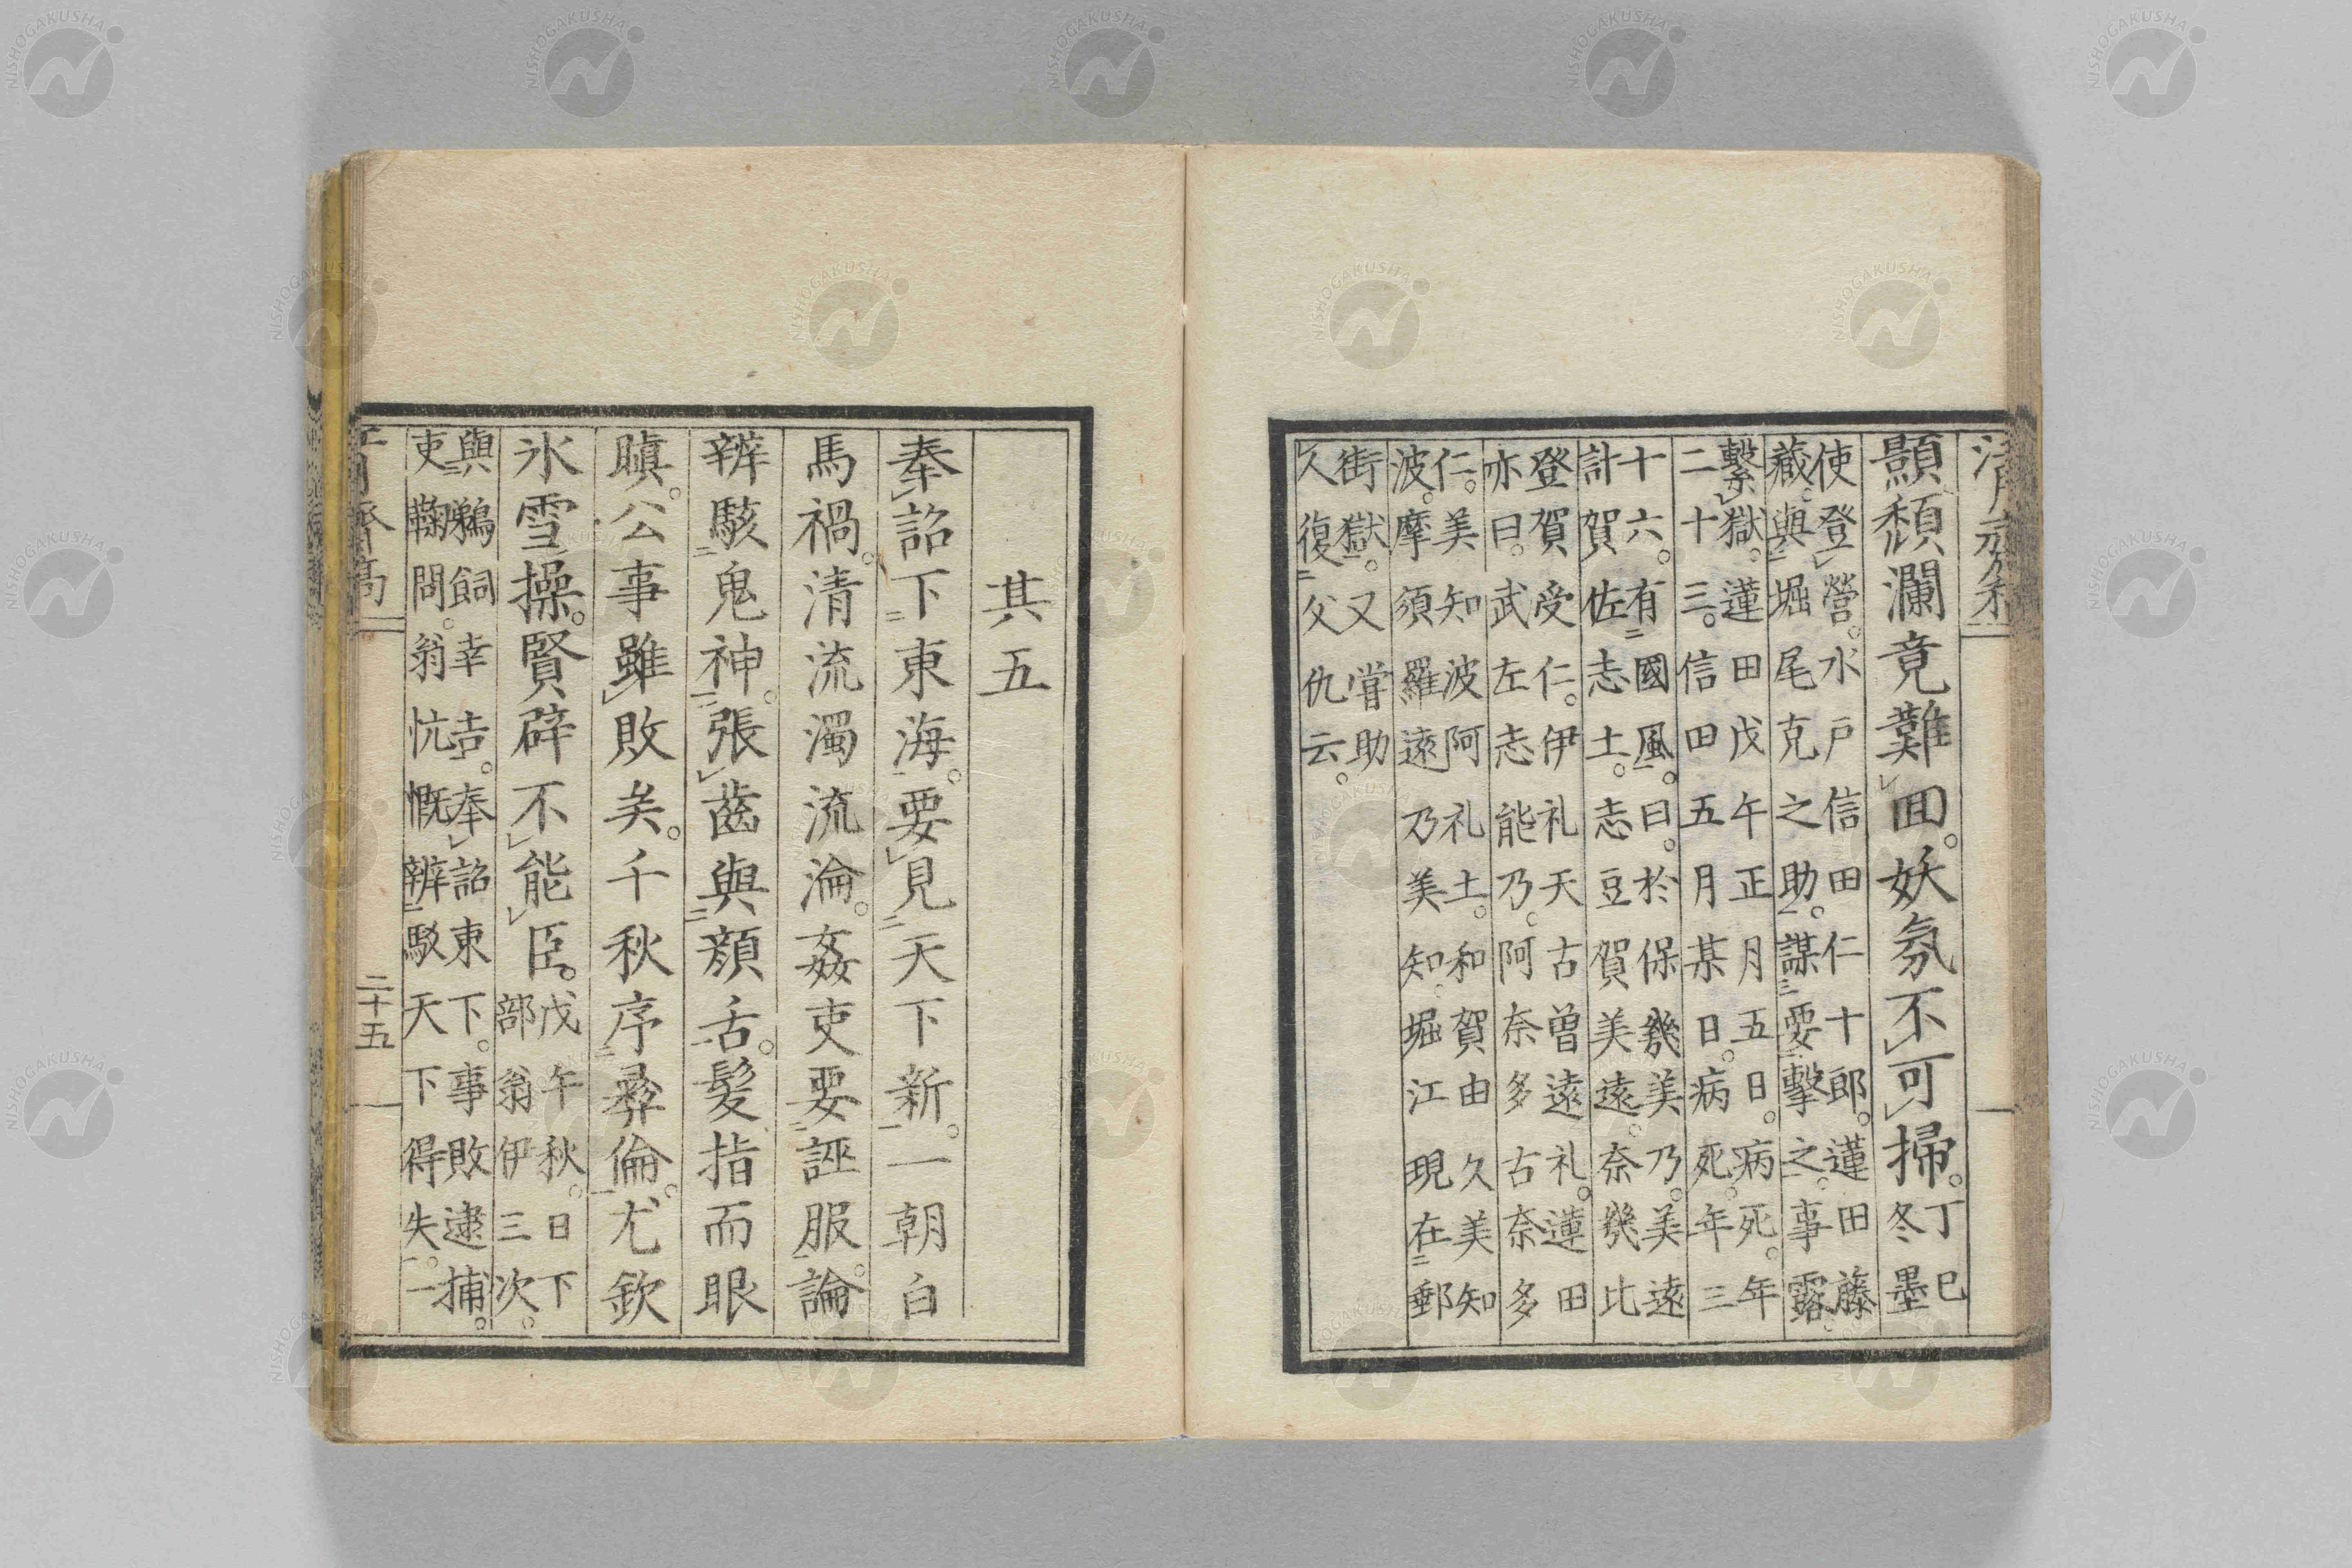 顯頽瀾竟難回。妖氛不可掃。丁巳冬墨
使登營。水戶信田仁十郎。蓮田藤
藏與堀尾克之助。謀要擊之。事露
繫獄。蓮田戊午正月五日。病死。年
二十三。信田五月某日。病死。年三
十六。有國風。曰。於保幾美乃。美遠
計賀佐志土。志豆賀美遠。奈幾比
登賀受仁。伊礼天古曽遠礼。蓮田
亦曰。武左志能乃。阿奈多古奈多
仁。美知波阿礼土。和賀由久美知
波。摩須羅遠乃美知。堀江現在郵
街獄。又嘗助
人復父仇云。
其五
奉詔下東海。要見天下新。一朝白
馬禍。清流濁流淪。姦吏要誣服。論
辨駭鬼神。張齒與頿舌。髮指而眼
瞋。公事雖敗矣。千秋序彛倫。尤欽
氷雪操。賢辟不能臣。戊午秋。日下部翁伊三次。
與鵜飼幸吉。奉詔東下。事敗逮捕。
吏鞠問。翁忼慨辨駁天下得失。一
二十五
NISHOGAKUSHA